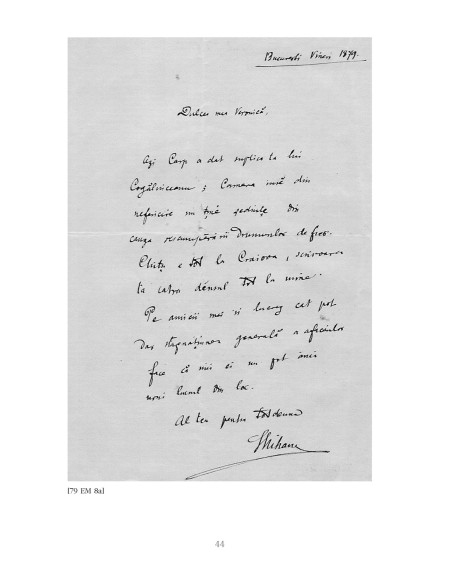 Bucuresti Vineri 1879.
Dulcea mea Veronică,
Azi Carp a dat suplica ta lui
Cogălniceanu; Camera însă din
nefericire nu ține ședințe din
cauza rescumpărării Drumurilor de fier.
Chițu e tot la Craiova, scrisoarea
ta catre dênsul tot la mine.
Pe amicii mei îi lucrez cat pot
Dar stagnațiunea generală a afacerilor
face că nici ei nu pot
lucrul din loc.
Al teu pentru totdeauna
Mihai
[79 EM 8a]
44